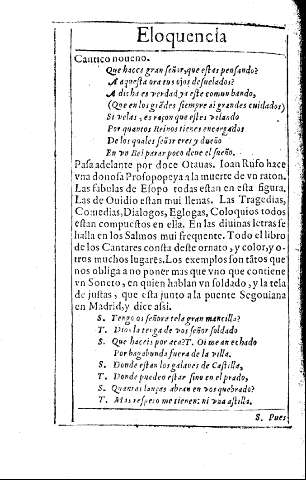 Eloquencia
Cantico noueno.
Que hazes gran señor, que estas pensando?
A aquesta ora tus ojos desuelados?
A dicha es verdad, ya este comun bando,
(Que en los grãdes siempre ai grandes cuidados)
Si velas, es raçon que estes velando
Por quantos Reinos tienes encargados
De los quales señor eres y dueño
En vn Rei parar poco deue el sueño.
Passa adelante por doce Otauas. Ioan Rufo hace
vna donosa Prosopopeya a la muerte de vn raton.
Las fabulas de Esopo todas estan en esta figura.
Las de Ouidio estan mui llenas. Las Tragedias,
Comedias, Dialogos, Eglogas, Coloquios todos
estan compuestos en ella. En las diuinas letras se
halla en los Salmos mui frequente. Todo el libro
de los Cantares consta deste ornato, y color, y o-
tros muchos lugares. Los exemplos son tãtos que
nos obliga a no poner mas que vno que contiene
vn Soneto, en quien hablan vn soldado, y la tela
de justas, que esta junto a la puente Segouiana
en Madrid, y dice assi.
S. Tengo os señora tela gran mancilla?
T. Dios la tenga de vos señor soldado
S. Que haceis por aca? T. Oi me an echado
Por bagabunda fuera de la villa.
S. Donde estan los galanes de Castilla,
T. Donde pueden estar sino en el prado,
S. Quantas lanças abran en vos quebrado?
T. Mas respeto me tienen: ni vna astilla.
S. Pues